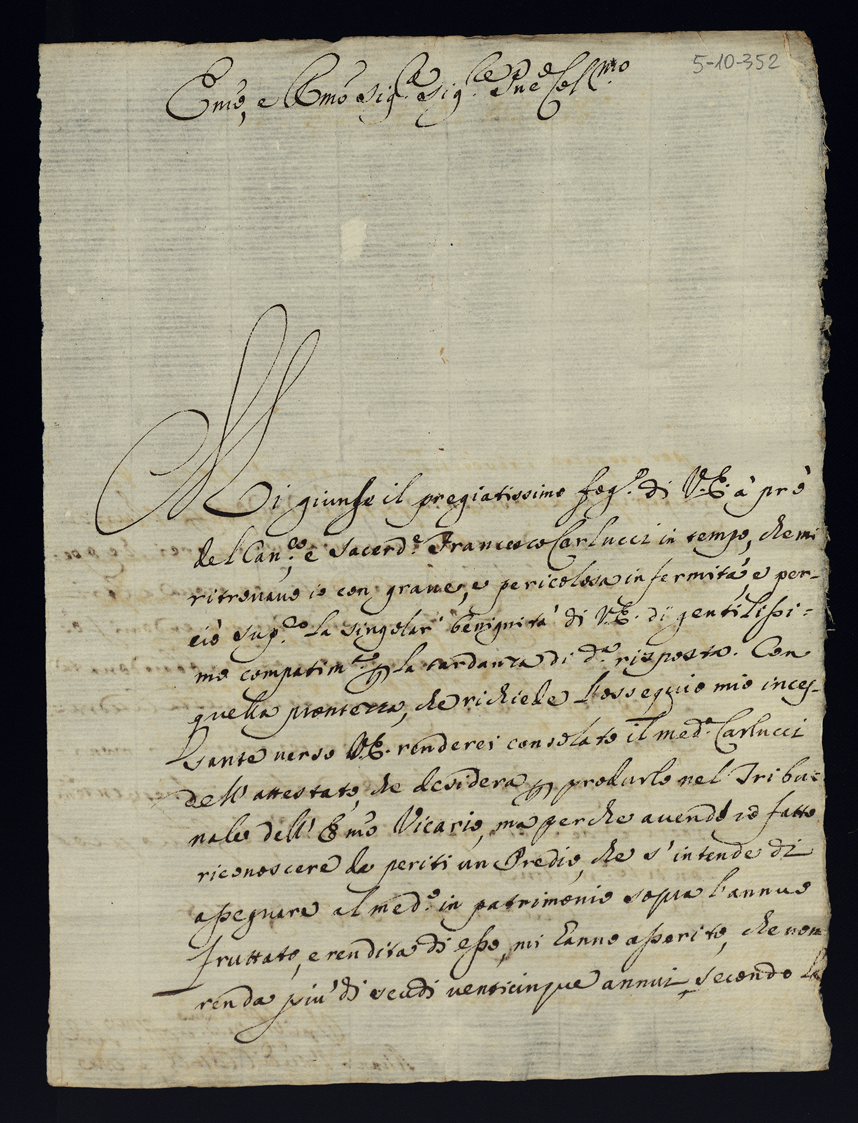 5-10-352
Emo, e Rmo Sig.r Sig.re Pne Col.mo
Mi giunse il pregiatissimo fog.o di V.E. à prò
del Can.co, e Sacerd.e Francesco Carlucci in tempo, che mi
ritrovavo io con grave, e pericolosa infermità e per-
ciò sup.co la singolar' benignità di V.E. di gentilissi-
mo compatim.to la tardanza di d.a risposta. Con
quella prontezza, che richiede l'ossequio mio inces-
sante verso V.E. renderei consolato il med.o Carlucci
dell'attestato, che desidera produrlo nel Tribu-
nale dell'Emo Vicario, ma perche avendo io fatto
riconoscere da periti un Predio, che s'intende di
assegnare al med.o in patrimonio sopra l'annuo
fruttato, e rendita di esso, mi hanno asserito, che non
renda più di scudi venticinque annui secondo la